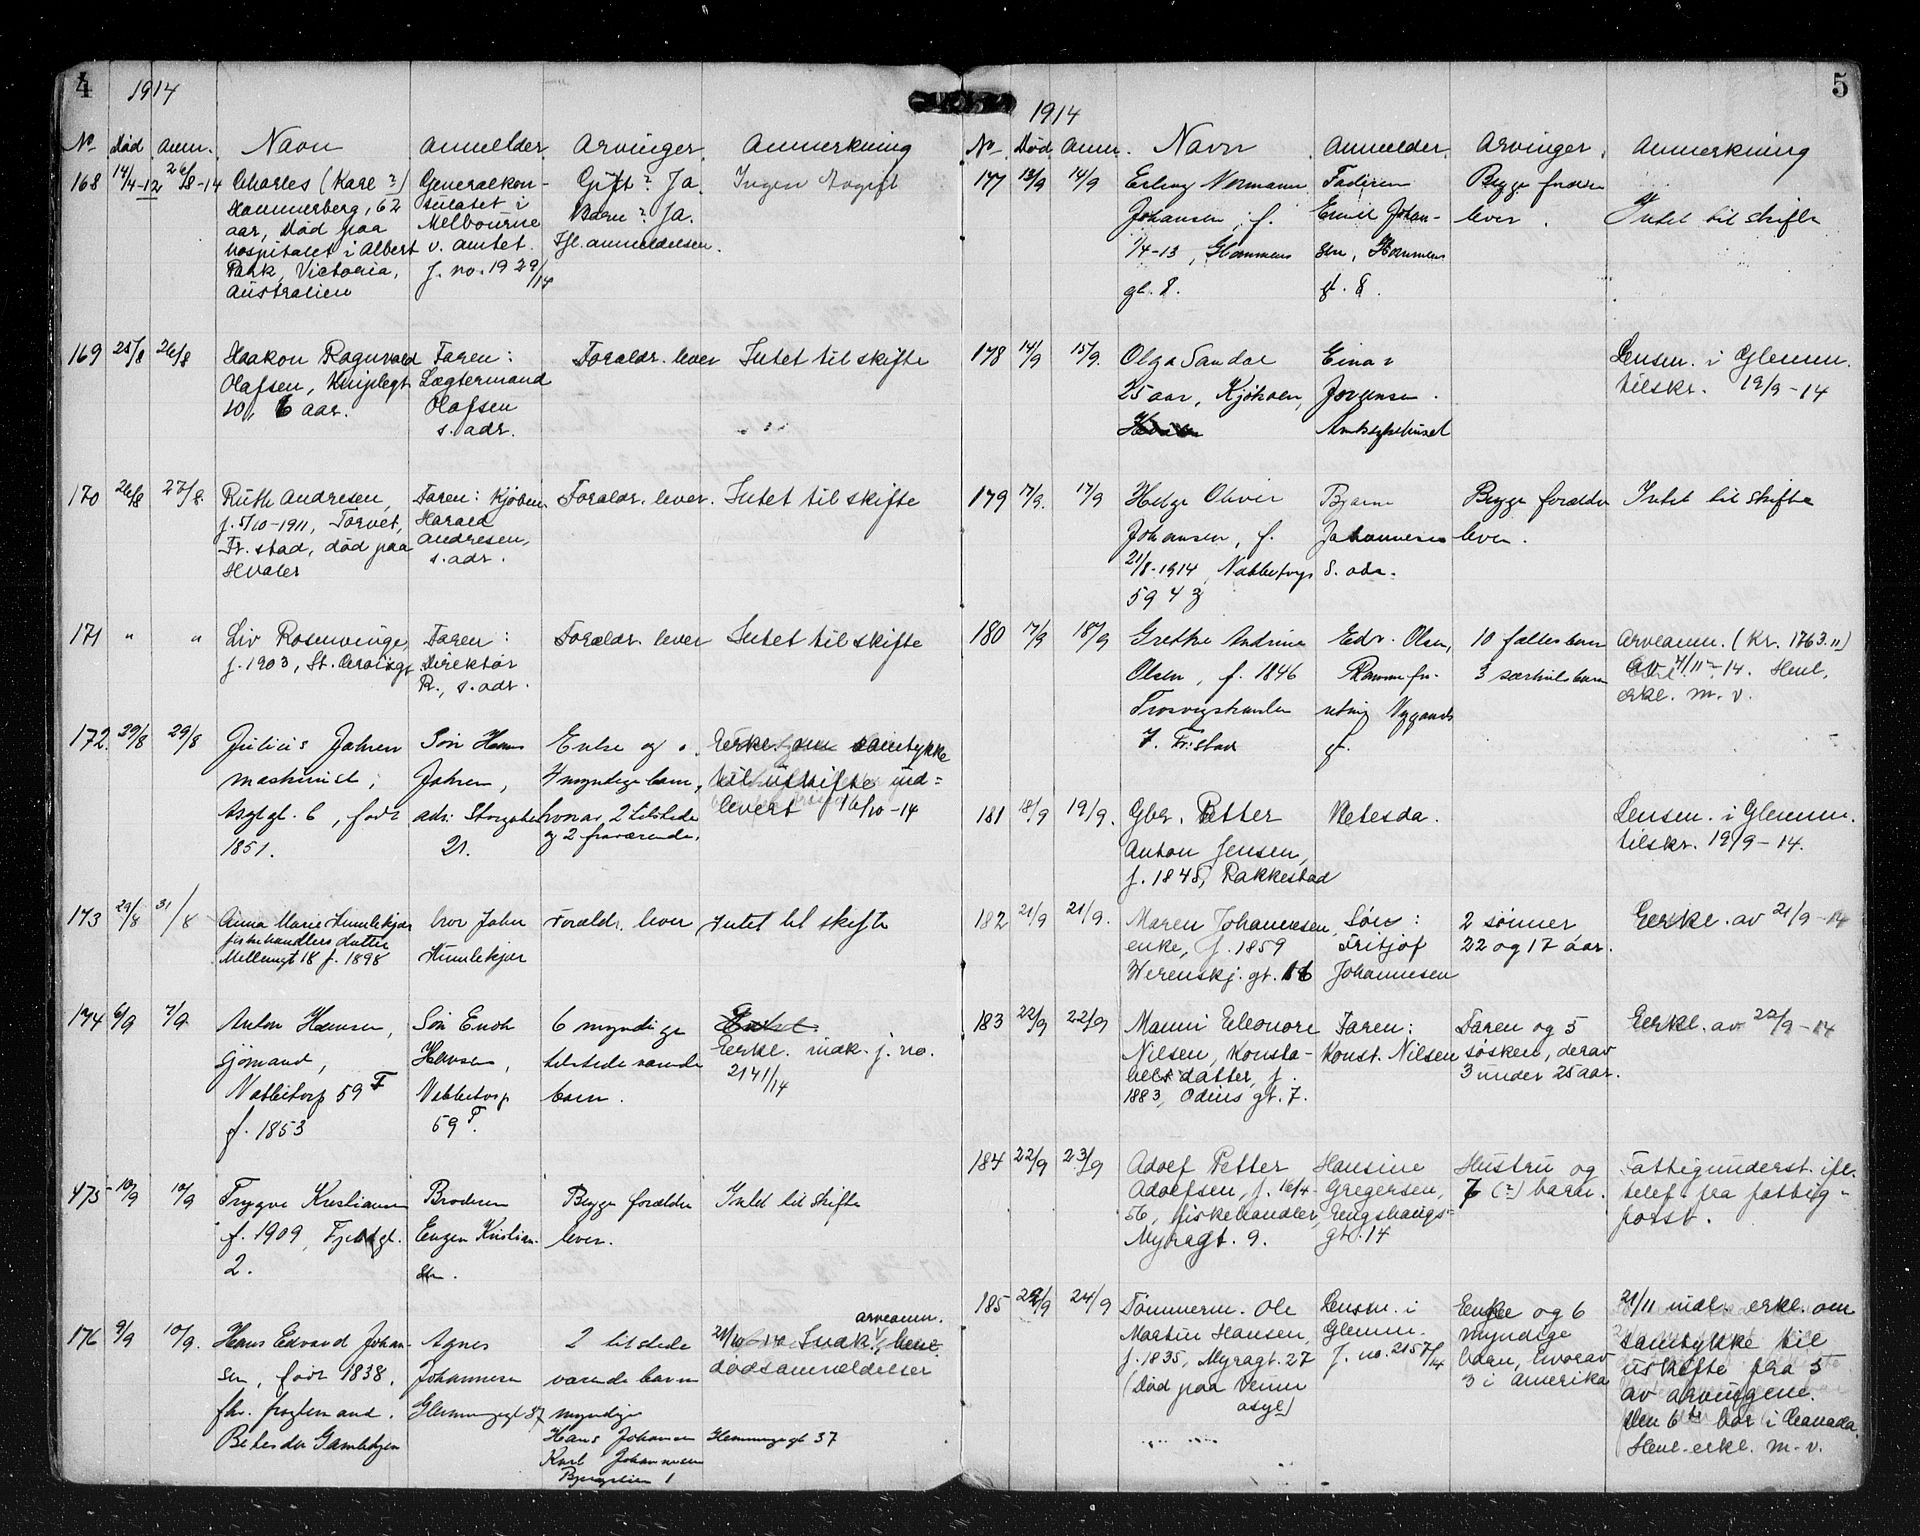 4
1914
No Død Anm. Navn Anmelder Arvinger Anmerkning
168 14/4-12 26/8-14 Charles (Karl?) Generalkon- Gift? Ja Ingen Avgift
Hammerberg, 62 sulatet i Barn? Ja.
aar, død paa Melbourne Tfl. anmeldelsen.
hospitalet i Albert v. amtet.
Park, Victoria, J. no. 1929/14
Australien
169 25/8 26/8 Haakon Ragnvald Faren: Foraldr. lever Intet til skifte
Olafsen, Lægtermand
10, 6 aar. Olafsen
s. adr.
170 26/8 27/8. Ruth Andresen, Faren: Kjøbm. Foraldr. lever. Intet til skifte
f. 5/10-1911, Torvet, Harald
Fr.stad, død paa Andresen,
Hvaler s. adr.
171 " " Liv Rosenvinge, Faren: Forældr. lever Intet til skifte
f. 1903, St. Croixgt Direktør
R., s. adr.
172. 29/8 29/8 Julius Jahren Søn Hans Enke og Eerkl. om samtykke
maskinist, Jahren, 4 myndige barn, til uskifte ind-
gt. 6, født adr. Storgaten hvorav 2 tilstede levert 16/10-14
1851. 21. og 2 fraværende.
173 29/8 31/8 Anna Marie Humlekjær bror John Forældr. lever Intet til skifte
fiskehandlers datter Humlekjær
Mellemgt 18 f. 1898
174 6/9 7/9 Anton Hansen, Søn Enok 6 myndige
sjømand, Hansen, tilstedeværende Eerkl. indk. j. no.
Nabbetorp 59 F Nabbetorp barn. 2141/14
f. 1853 59 F.
175 10/9 10/9 Trygve Kristiansen Broderen Begge forældre Intet til skifte
f. 1909, gt. Eugen Kristian- lever.
2. sen.
arveanm.
176 9/9 10/9. Hans Edvard Johan- Agnes 2 tilstede 21/10 14 Indk.
sen, født 1838, Johannesen værende barn dødsanmeldelser
fhv. fragtemand. Glemmengt 37 myndige
Betesda Gamlebyen Hans Johansen Glemmengt 37
Karl Johannesen
Bjergelien 1
5
1914
No Død Anm. Navn Anmelder. Arvinger. Anmerkning
177 13/9 14/9 Erling Normann Faderen Begge foreldre
Johansen, f. Emil Johan- lever. Intet til skifte
1/4-13, Glommens sen, Glommens
gt. 8. gt. 8.
178 14/9 15/9. Olga Sandal Einar Lensm. i Glemm.
25 aar, Kjøkøen, Jørgensen. tilskr. 19/9-14
Amtssykehuset
179 17/9. 17/9 Helge Oliver Bjarne Begge forældre Intet til skifte
Johansen, f. Johannesen lever.
21/8-1914, Nabbetorp s. adr.
59 4 z
180 17/9 18/9 Grethe Andrine Edv. Olsen, 10 fællesbarn Arveanm. (Kr. 1763.11)
Olsen, f. 1846 Ramme for- 3 særkulsbarn av 4/11-14. Henl.
Trosvigstranden retning Nygaards erkl. m. v.
7. Fr.stad gt.
181 18/9 19/9. Gbr. Petter Betesda. Lensm. i Glemm.
Anton Jensen, tilskr. 19/9-14.
f. 1848, Rakkestad
182 21/9 21/9. Maren Johannesen, Søn: 2 sønner Eerkl. av 21/9-14
enke, f. 1859 Fritjof 22 og 17 aar.
Werenskj. gt. 16 Johannesen
183 22/9 22/9 Manni Eleonore Faren: Faren og 5 Eerkl. av 22/9-14
Nilsen, Konsta- Konst. Nilsen søsken, derav
bels datter, f. 3 under 25 aar.
1883, Odins gt. 7.
184 22/9 23/9 Adolf Petter Hansine Hustru og Fattigunderst. ifl.
Adolfsen, f. 16/4- Gregersen, 7 (?) barn. telef. fra fattig-
56, fiskehandler, Enghaugs- forst.
Myragt. 9. gt. 14
185 22/9 24/9 Tømmerm. Ole Lensm. i Enke og 6 21/11 indl. erkl. om
Martin Hansen, Glemm. myndige samtykke til
f. 1835, Myragt. 27 J. no. 2157/14 barn, hvorav uskifte fra 5
(Død paa Venn 3 i Amerika av arvingene.
asyl) Den 6te bor i Canada.
Henl-erkl. m. v.